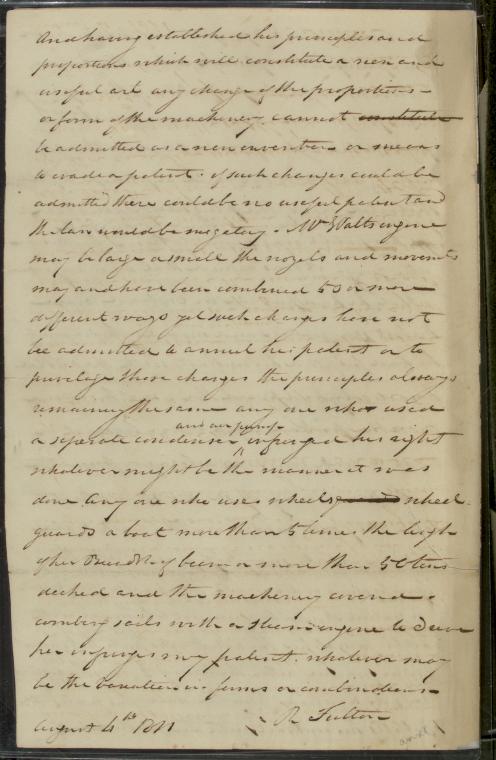 And having established his principles and
proportions which will constitute a new and
useful art any change of the proportions
or form of the machinery cannot constitute
be admitted as a new invention or means
to evade a patent. if such changes could be
admitted there could be no useful patent and
the law would be nugatory. Mr Watts engine
may be large or small the nozels and movements
may and have been combined 50 or more
different ways yet such changes have not
been admitted to annul his patent or to
privilege those changes the principles always
remaining the same any one who used
and air pump
a seperate condenser infringed his right
whatever might be the manner it was
done any one who uses wheels wheel
guards a boat more than 5 times the length
of her breadth of beam or more than 50 tons
decked and the machinery covered or
combing sails with a steam engine to drive
her infringes my patent. whatever may
be the variation in forms or combinations
August 4th 1811 R Fulton